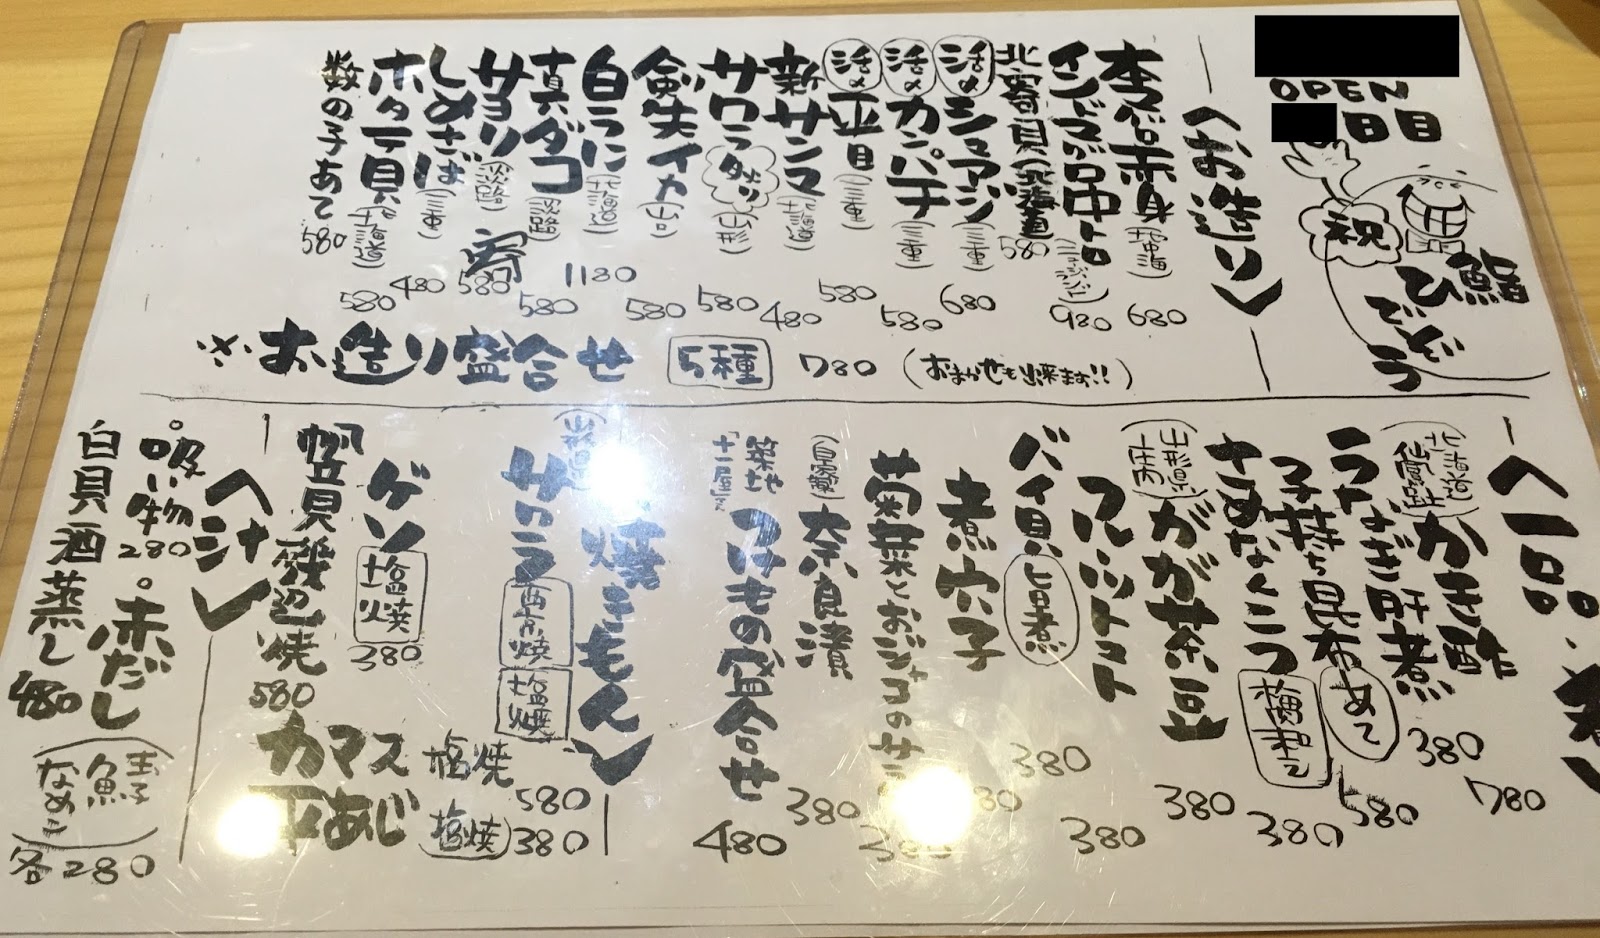 OPEN
日目
祝
鮨
ひでぞう
〈お造り〉
本マグロ赤身(地中海) 680
インドマグロ中トロ(ニュージーランド) 980
北寄貝(北海道) 580
活〆シマアジ(三重) 680
活〆カンパチ(三重) 580
活〆平目(三重) 580
新サンマ(北海道) 480
サワラタタキ(山形) 580
剣先イカ(山口) 580
白うに(北海道) 1180
真ダコ(淡路) 580
サヨリ(淡路) 580
しめさば(三重) 480
ホタテ貝(北海道) 580
数の子あて 580
※お造り盛合せ 5種 780 (おまかせも出来ます!!)
〈一品
北海道 仙鳳趾 かき酢 780
うなぎ肝煮 380
子持ち昆布あて 580
さめなんこつ 梅和え 380
(山形県庄内) だだ茶豆 380
フルーツトマト 380
バイ貝 旨煮 380
煮穴子
菊菜とおジャコのサラ
(自家製) 奈良漬 380
築地「十一屋」さん つけもの盛合せ 480
〈焼きもん〉
サワラ 西京焼 塩焼
ゲソ 塩焼 380
帆立貝磯辺焼 580
カマス 塩焼 580
平あじ (塩焼) 380
〈汁〉
吸い物 280
赤だし
(玉子 鮭 なめこ) 各280
白貝酒蒸し 480